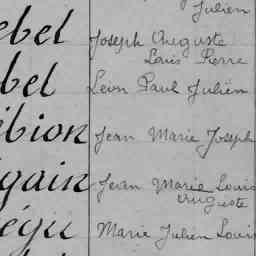 Julien
ebel Joseph Auguste
Louis Pierre
bel Léon Paul Julien
ébion Jean Marie Joseph
égain Jean Marie Louis
Auguste
égu Marie Julien Louis